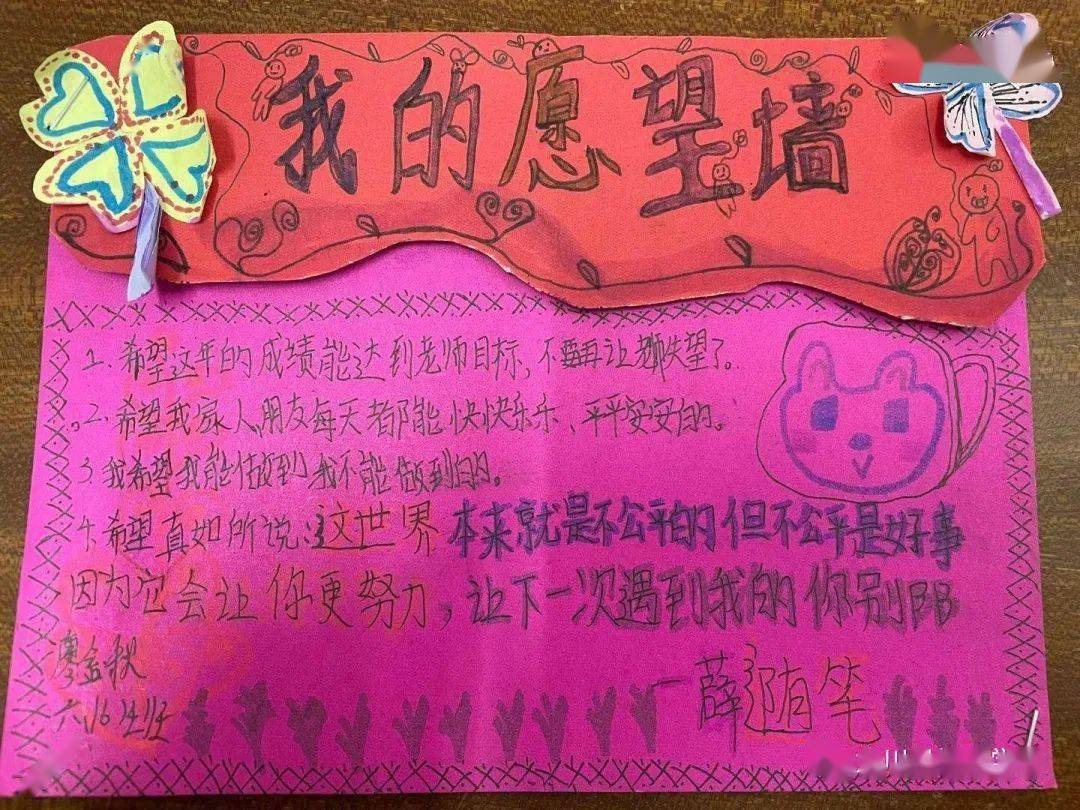 我的愿望墙
1. 希望这年的成绩能达到老师目标，不要再让老师失望了。
2. 希望我家人、朋友每天都能快快乐乐、平平安安的。
3. 我希望我能做到我不能做到的。
4. 希望真如所说：这世界本来就是不公平的但不公平是好事
因为它会让你更努力，让下一次遇到我的你别
一薛随笔
廖
六